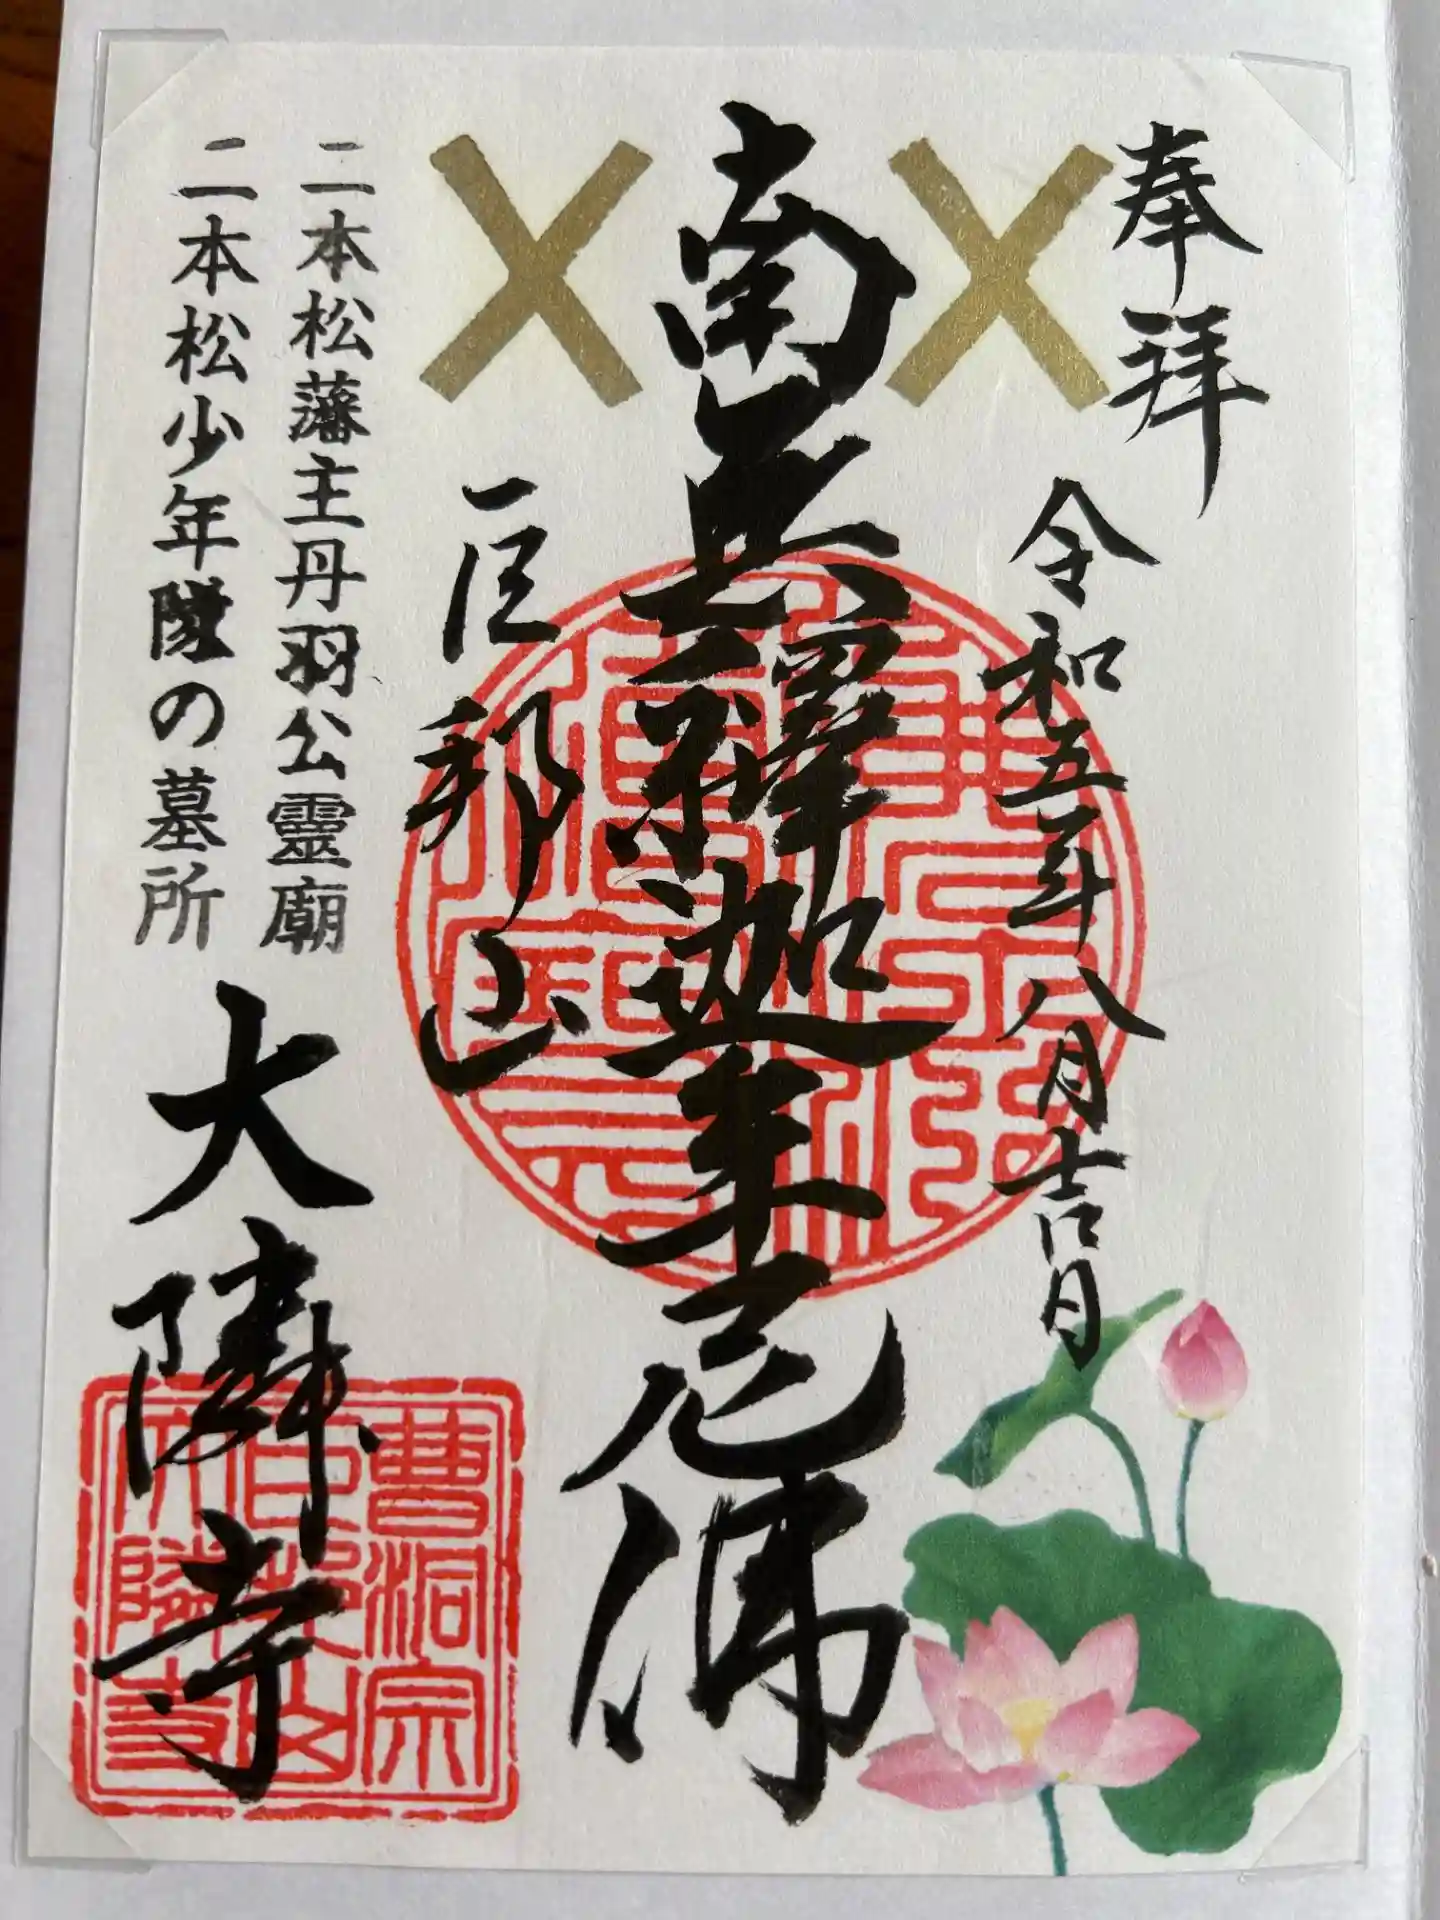 奉拝
令和五年八月吉日
南無釋迦牟尼佛
巨邦山
二本松藩主丹羽公靈廟
二本松少年隊の墓所
大隣寺
曹洞宗
巨邦山
大隣寺